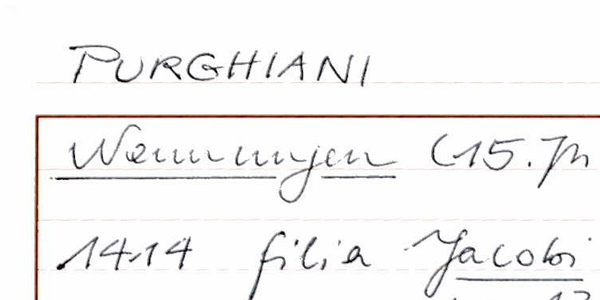 PURGHIANI
Nennungen (15. Jh
1414 filia Jacobi